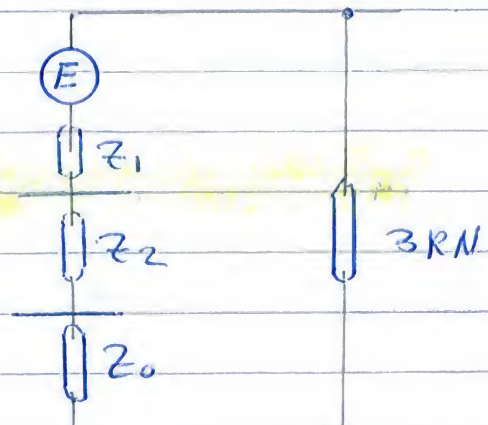 E
Z1
Z2
3RN
Z0